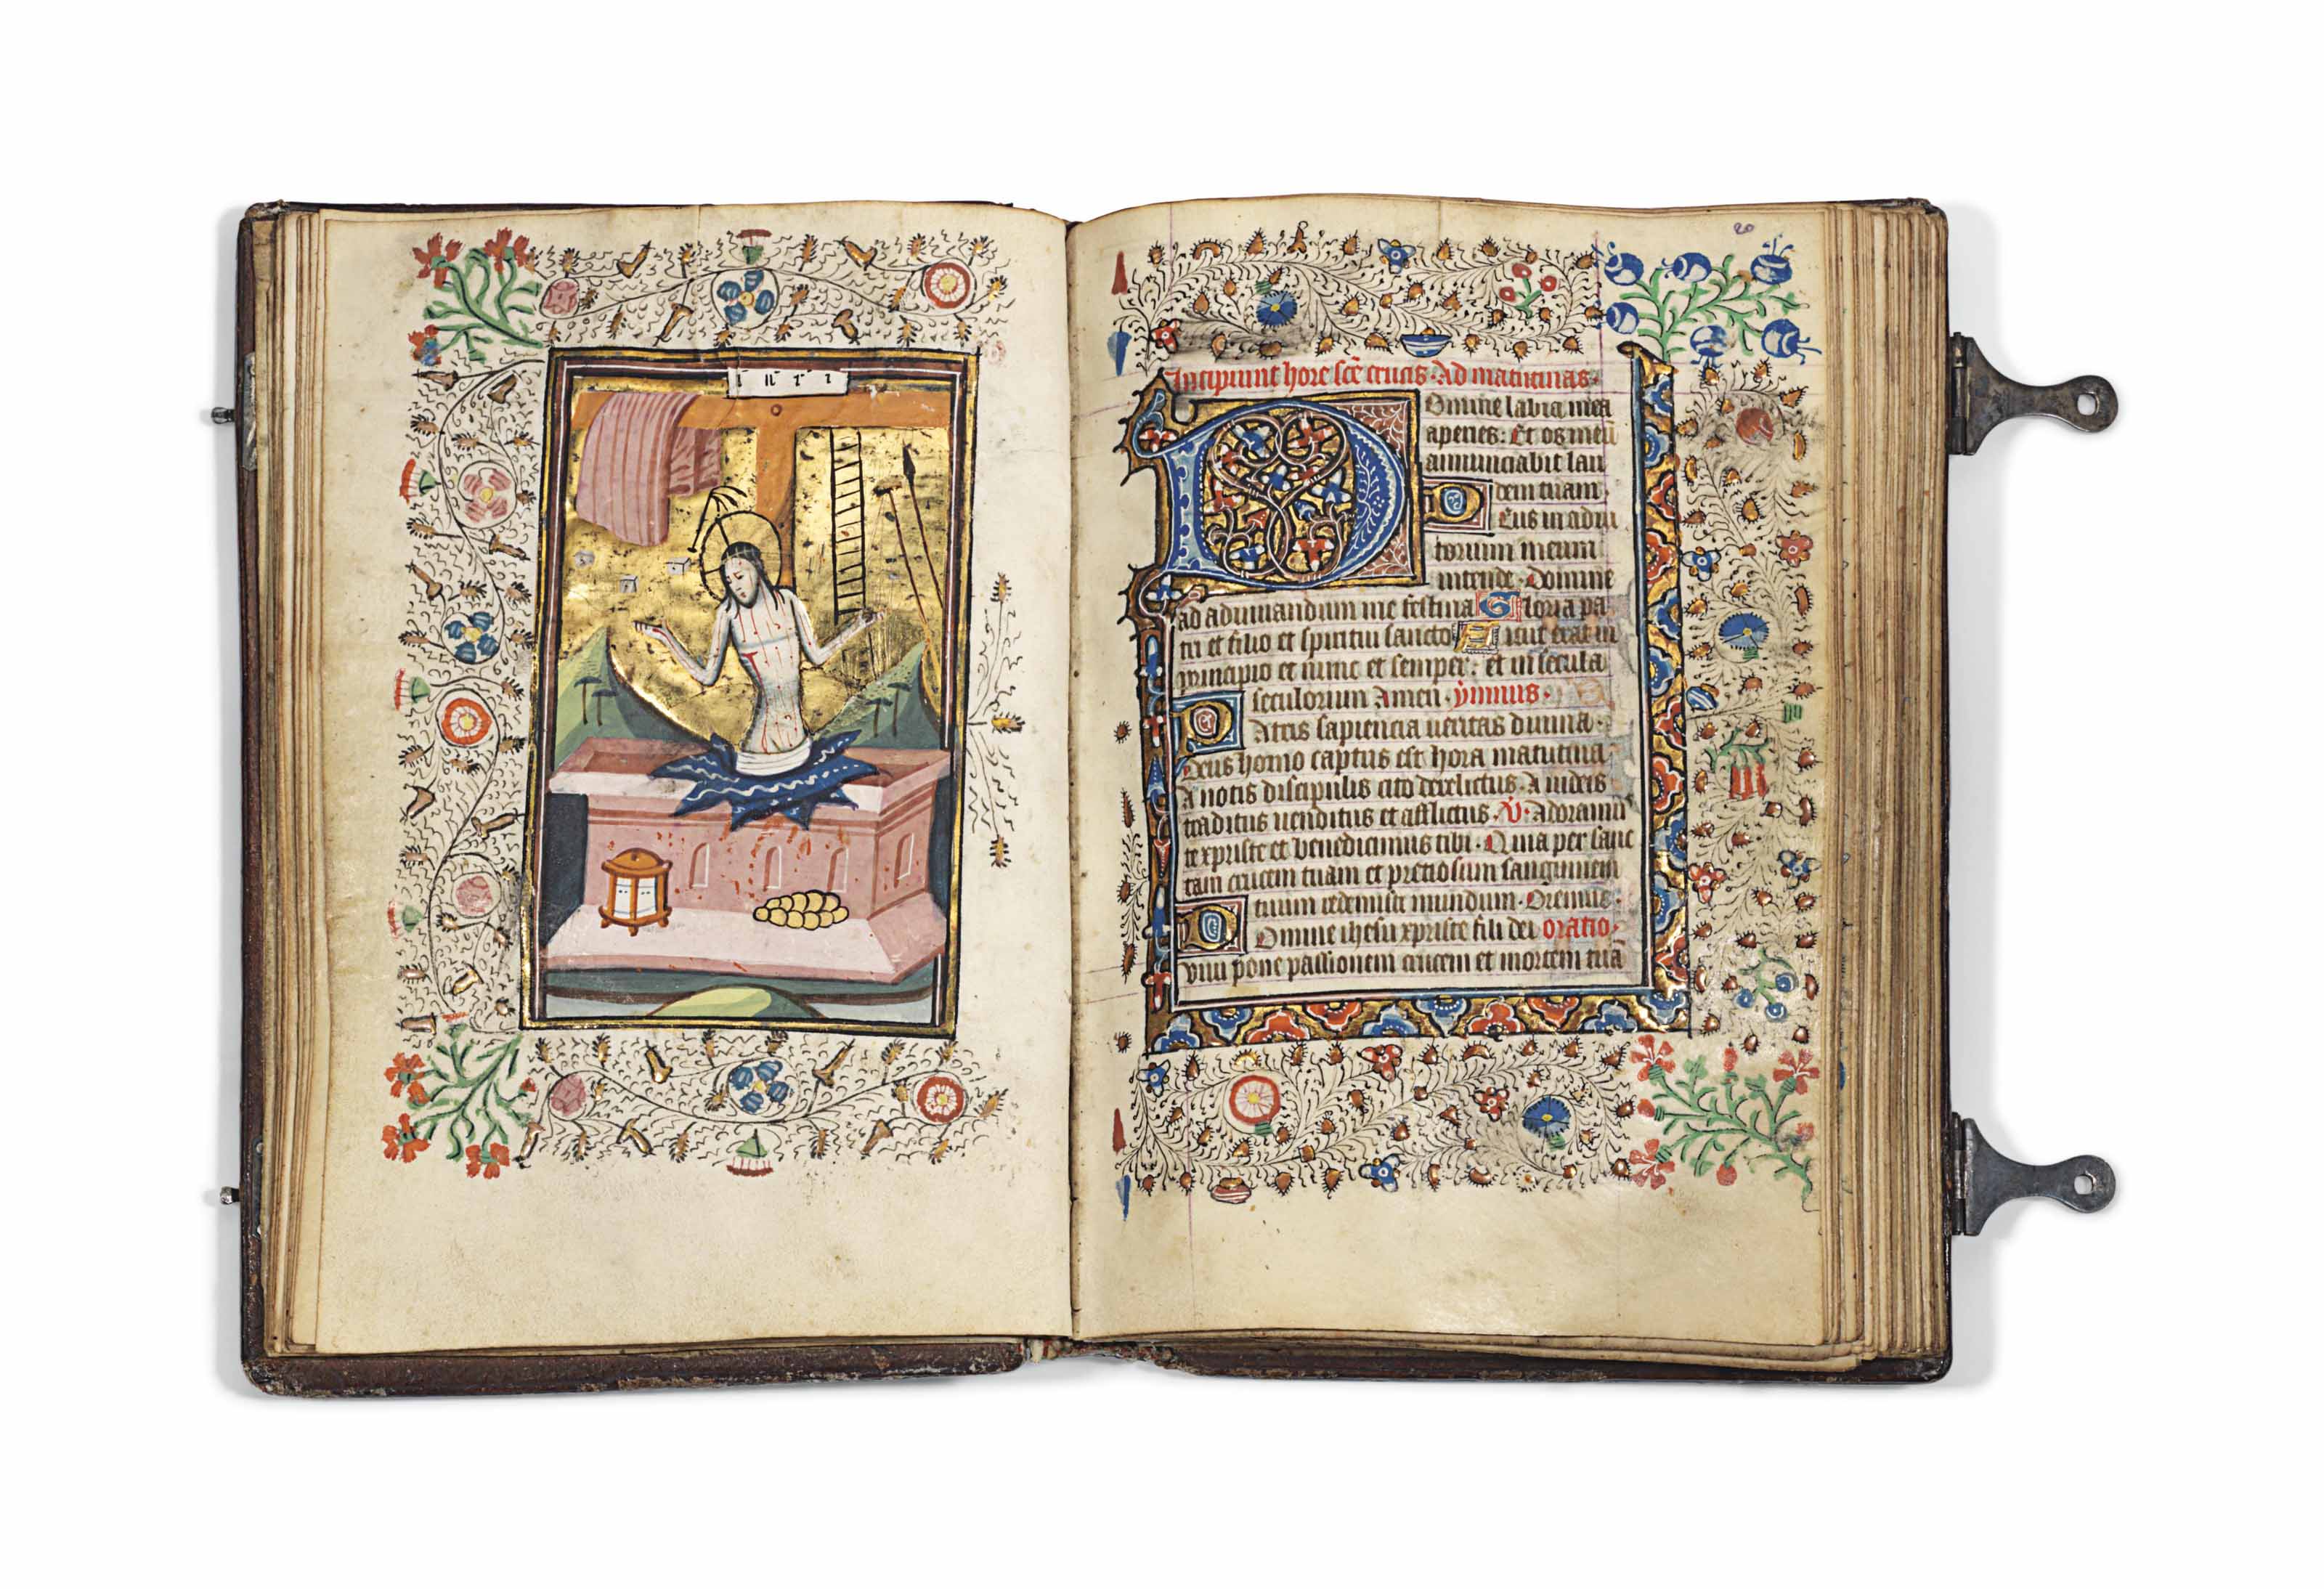 I N R I
20
Incipiunt hore scē crucis · Ad matutinas ·
Domine labia mea
aperies : Et os meū
annunciabit lau
dem tuam .
Deus in adiu
torium meum
intende · Domine
ad adiuuandum me festina Gloria pa
tri et filio et spiritui sancto Sicut erat in
principio et nunc et semper : et in secula
seculorum Amen · ymnus ·
Patris sapiencia ueritas diuina ·
Deus homo captus est hora matutina
A notis discipulis cito derelictus · A iudeis
traditus uenditus et afflictus · V · Adoramꝰ
te xpriste et benedicimus tibi · Quia per sanc
tam crucem tuam et preciosum sanguinem
tuum redemisti mundum · Oremus ·
Domine ihesu xpriste fili dei oratio ·
uiui pone passionem crucem et mortem tuā